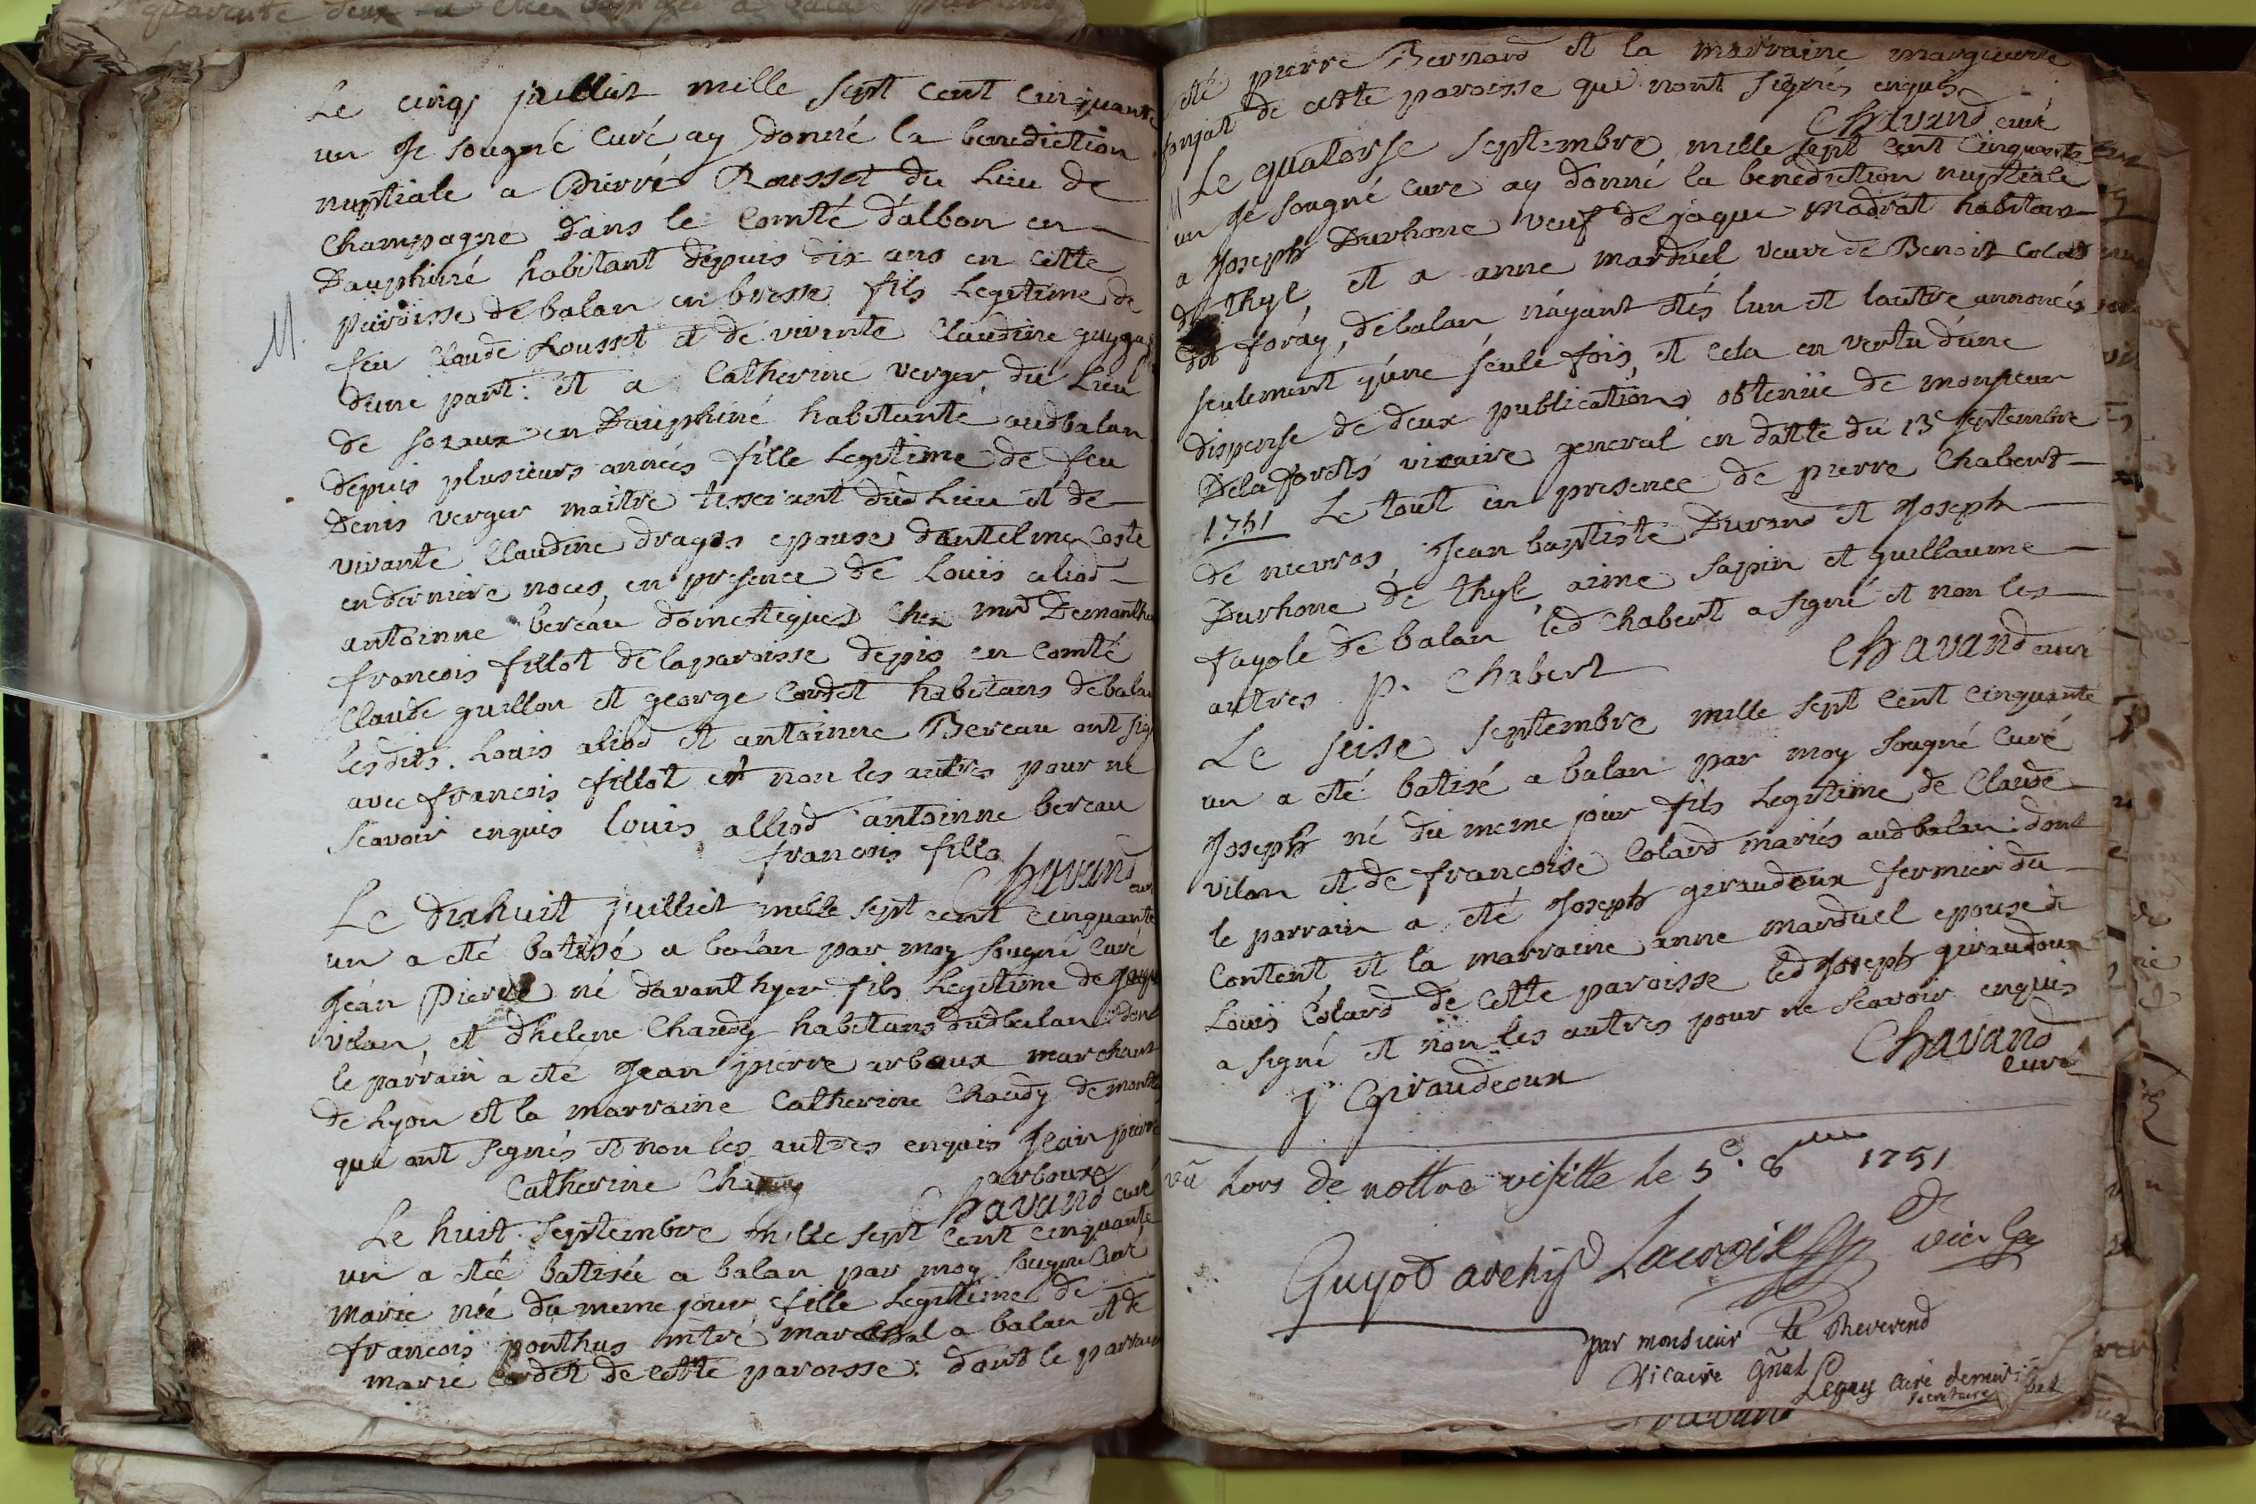 Le cinq juillet mille sept cent cinquante
un Je sougné curé ay donné la benediction
nuptiale a Pierre Rousset du Lieu de
Champagne dans le Comté d'albon en
Dauphiné habitant depuis dix ans en cette
M. paroisse de balan en bresse fils Legitime de
feu Claude Rousset et de vivante Claudine
d'une part: et a Catherine verger du Lieu
de en Dauphiné habitante audbalan
depuis plusieurs années fille Legitime de feu
Denis verger maitre tisserant dud Lieu et de
vivante Claudine dragos epouse dantelme Coste
en derniere noces, en presence de Louis aliod
antoinne bereau domestiques Chez mrd
francois fillot de la paroisse depis en Comté
Claude guillon et george Cordet habitans debalan
lesdits. Louis aliod et antoinne Bereau ont
avec francois fillot et non les autres pour ne
scavoir enquis Louis alliod antoinne bereau
francois fillo
Chavand
Le dixhuit juillet mille sept cent cinquante
un a eté batisé a balan par moy sougné curé
Jean Pierre né davanthyer fils Legitime de
vilan et dhelene Chaudy habitans dudbalan: dont
le parrain a eté Jean pierre arboux marchant
de Lyon et la marraine Catherine Chaudy de
qui ont signés et non les autres enquis Jean pierre
Catherine Chaudy arboux
Chavand curé
Le huit septembre mille sept cent cinquante
un a eteé batisée a balan par moy sougné Curé
marie née du meme jour fille Legitime de
francois ponthus mtré marechal a balan et de
marie Cordet de cette paroisse: dont le parrain
eté pierre Bernard et la marraine marguerite
de cette paroisse qui nont signés enquis
Chavand curé
M Le quatorse septembre mille sept cent cinquante
un Je sougné curé ay donné la benediction nuptiale
a Joseph Durhone veuf de jaque madrat habitant
de thyl, et a anne marduel veuve de Benoit Colard
dit foráy, debalan n'áyant etés lun et lautre annoncés
seulement qu'une seule fois, et cela en vertu dune
dispense de deux publications obtenüe de monsieur
Delaforets vicaire general en datte du 13e septembre
1751 Le tout en presence de pierre Chabert
de nievros, Jean baptiste Durand et Joseph
Durhone de thyl, aime sapin et guillaume
fayole de balan led Chabert a signé et non les
autres P. Chabert
Chavand curé
Le seise septembre mille sept cent cinquante
un a eté batisé a balan par moy sougné curé
Joseph né du meme jour fils Legitime de Claude
vilan et de francoise Colard mariés audbalan: dont
le parrain a eté Joseph giraudoux fermier du
Content et la marraine anne marduel epouse de
Louis Colard de cette paroisse led Joseph giraudoux
a signé et non les autres pour ne scavoir enquis
J Giraudeoux
Chavand
curé
vû Lors de nottre visitte le 5e. 8 1751
Guyod Lacroix vic
par monsieur le Rheverend
Vicaire gñal
secretaire